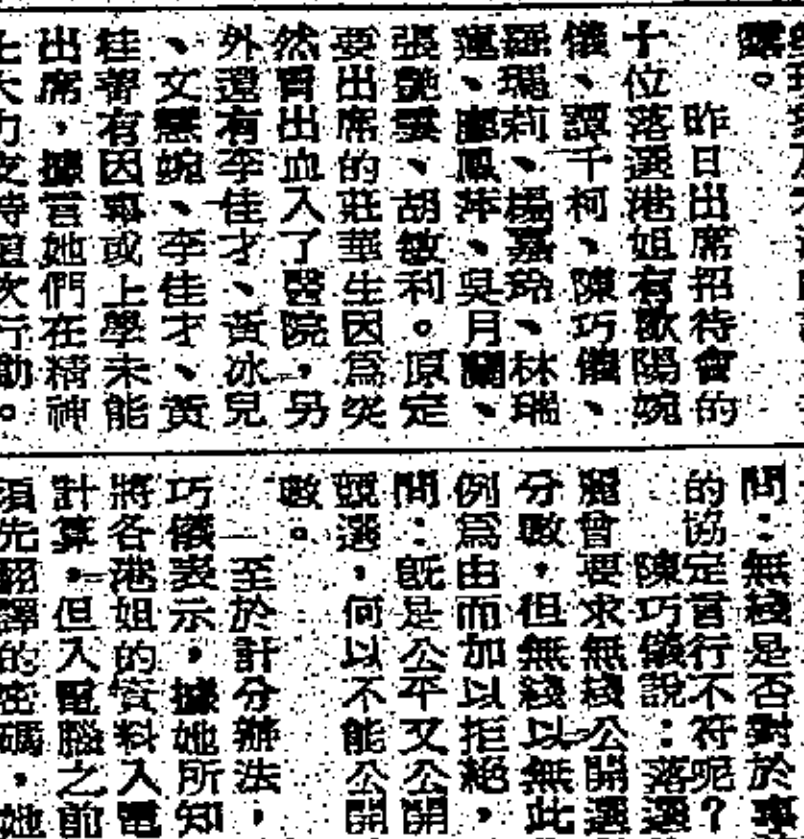 露。
昨日出席招待會的
十位落選港姐有歐陽婉
儀、譚千柯、陳巧儀、
羅瑪莉、楊嘉玲、林瑞
蓮、龐鳳萍、吳月蘭、
張艷雲、胡敏利。原定
要出席的莊華生因爲突
然胃出血入了醫院,另
外還有李佳才、黃冰兒
、文慧婉、李佳才、黃
佳蓉有因事或上學未能
出席,據言她們在精神
上大力支持這次行動。
問:無綫是否對於
的協定言行不符呢?
陳巧儀說:落選
麗曾要求無綫公開選
分數,但無綫以無此
例爲由而加以拒絕,
問:旣是公平又公開
競選,何以不能公開
數。
至於計分辦法,
巧儀表示,據她所知
將各港姐的資料入電
計算。但入電腦之前
須先翻譯的密碼,她